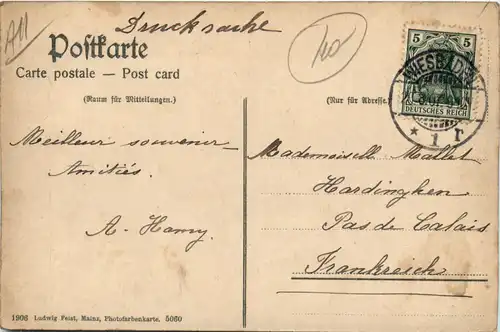 A11
Drucksache
Postkarte
Carte postale — Post card
(Raum für Mitteilungen.)
(Nur für Adresse.)
5 5
DEUTSCHES REICH
WIESBADEN
* 1 r
Meilleur souvenir
Amitiés.
A. Hamy.
Mademoiselle Mallet
Hardingken
Pas de Calais
Frankreich
1906 Ludwig Feist, Mainz, Photofarbenkarte. 5060